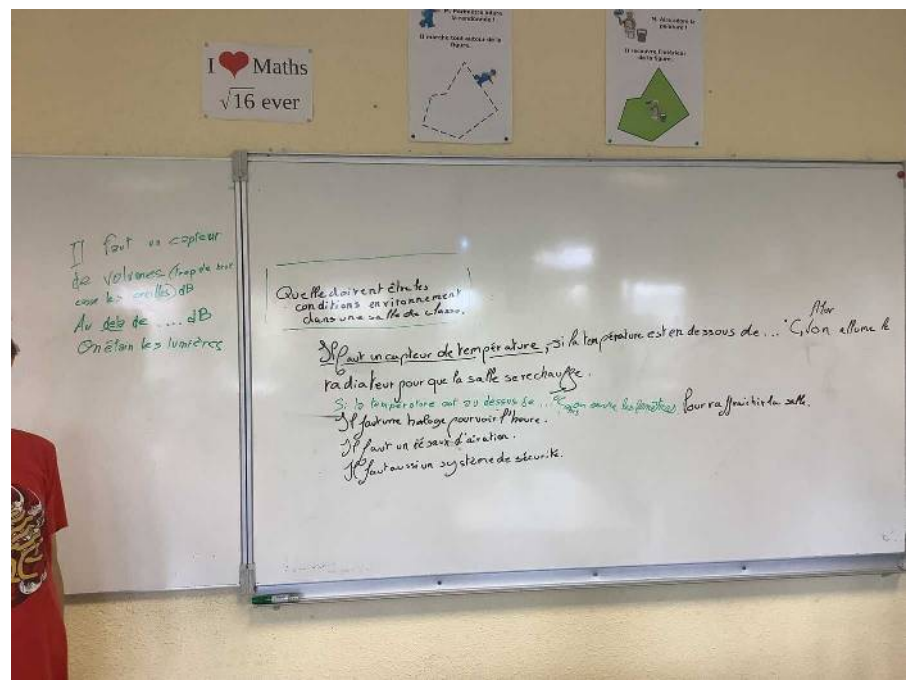 I ❤ Maths
√16 ever
M. Périmètre adore
la randonnée !
Il marche tout autour de la
figure.
M. Aire adore la
peinture !
Il recouvre l'intérieur
de la figure.
Il faut un capteur
de volumes (trop de bruit
casse les oreilles) dB
Au delà de .... dB
On étain les lumières
Quelle doivent être les
conditions environnement
dans une salle de classe.
Il faut un capteur de température, si la température est en dessous de ... °C, on allume le
radiateur pour que la salle se rechauffe.
Si la température est au dessus de ... °C on ouvre les fenêtres pour raffraichir la salle.
Il faut une horloge pour voir l'heure.
Il faut un d'airation.
Il faut aussi un système de sécurité.